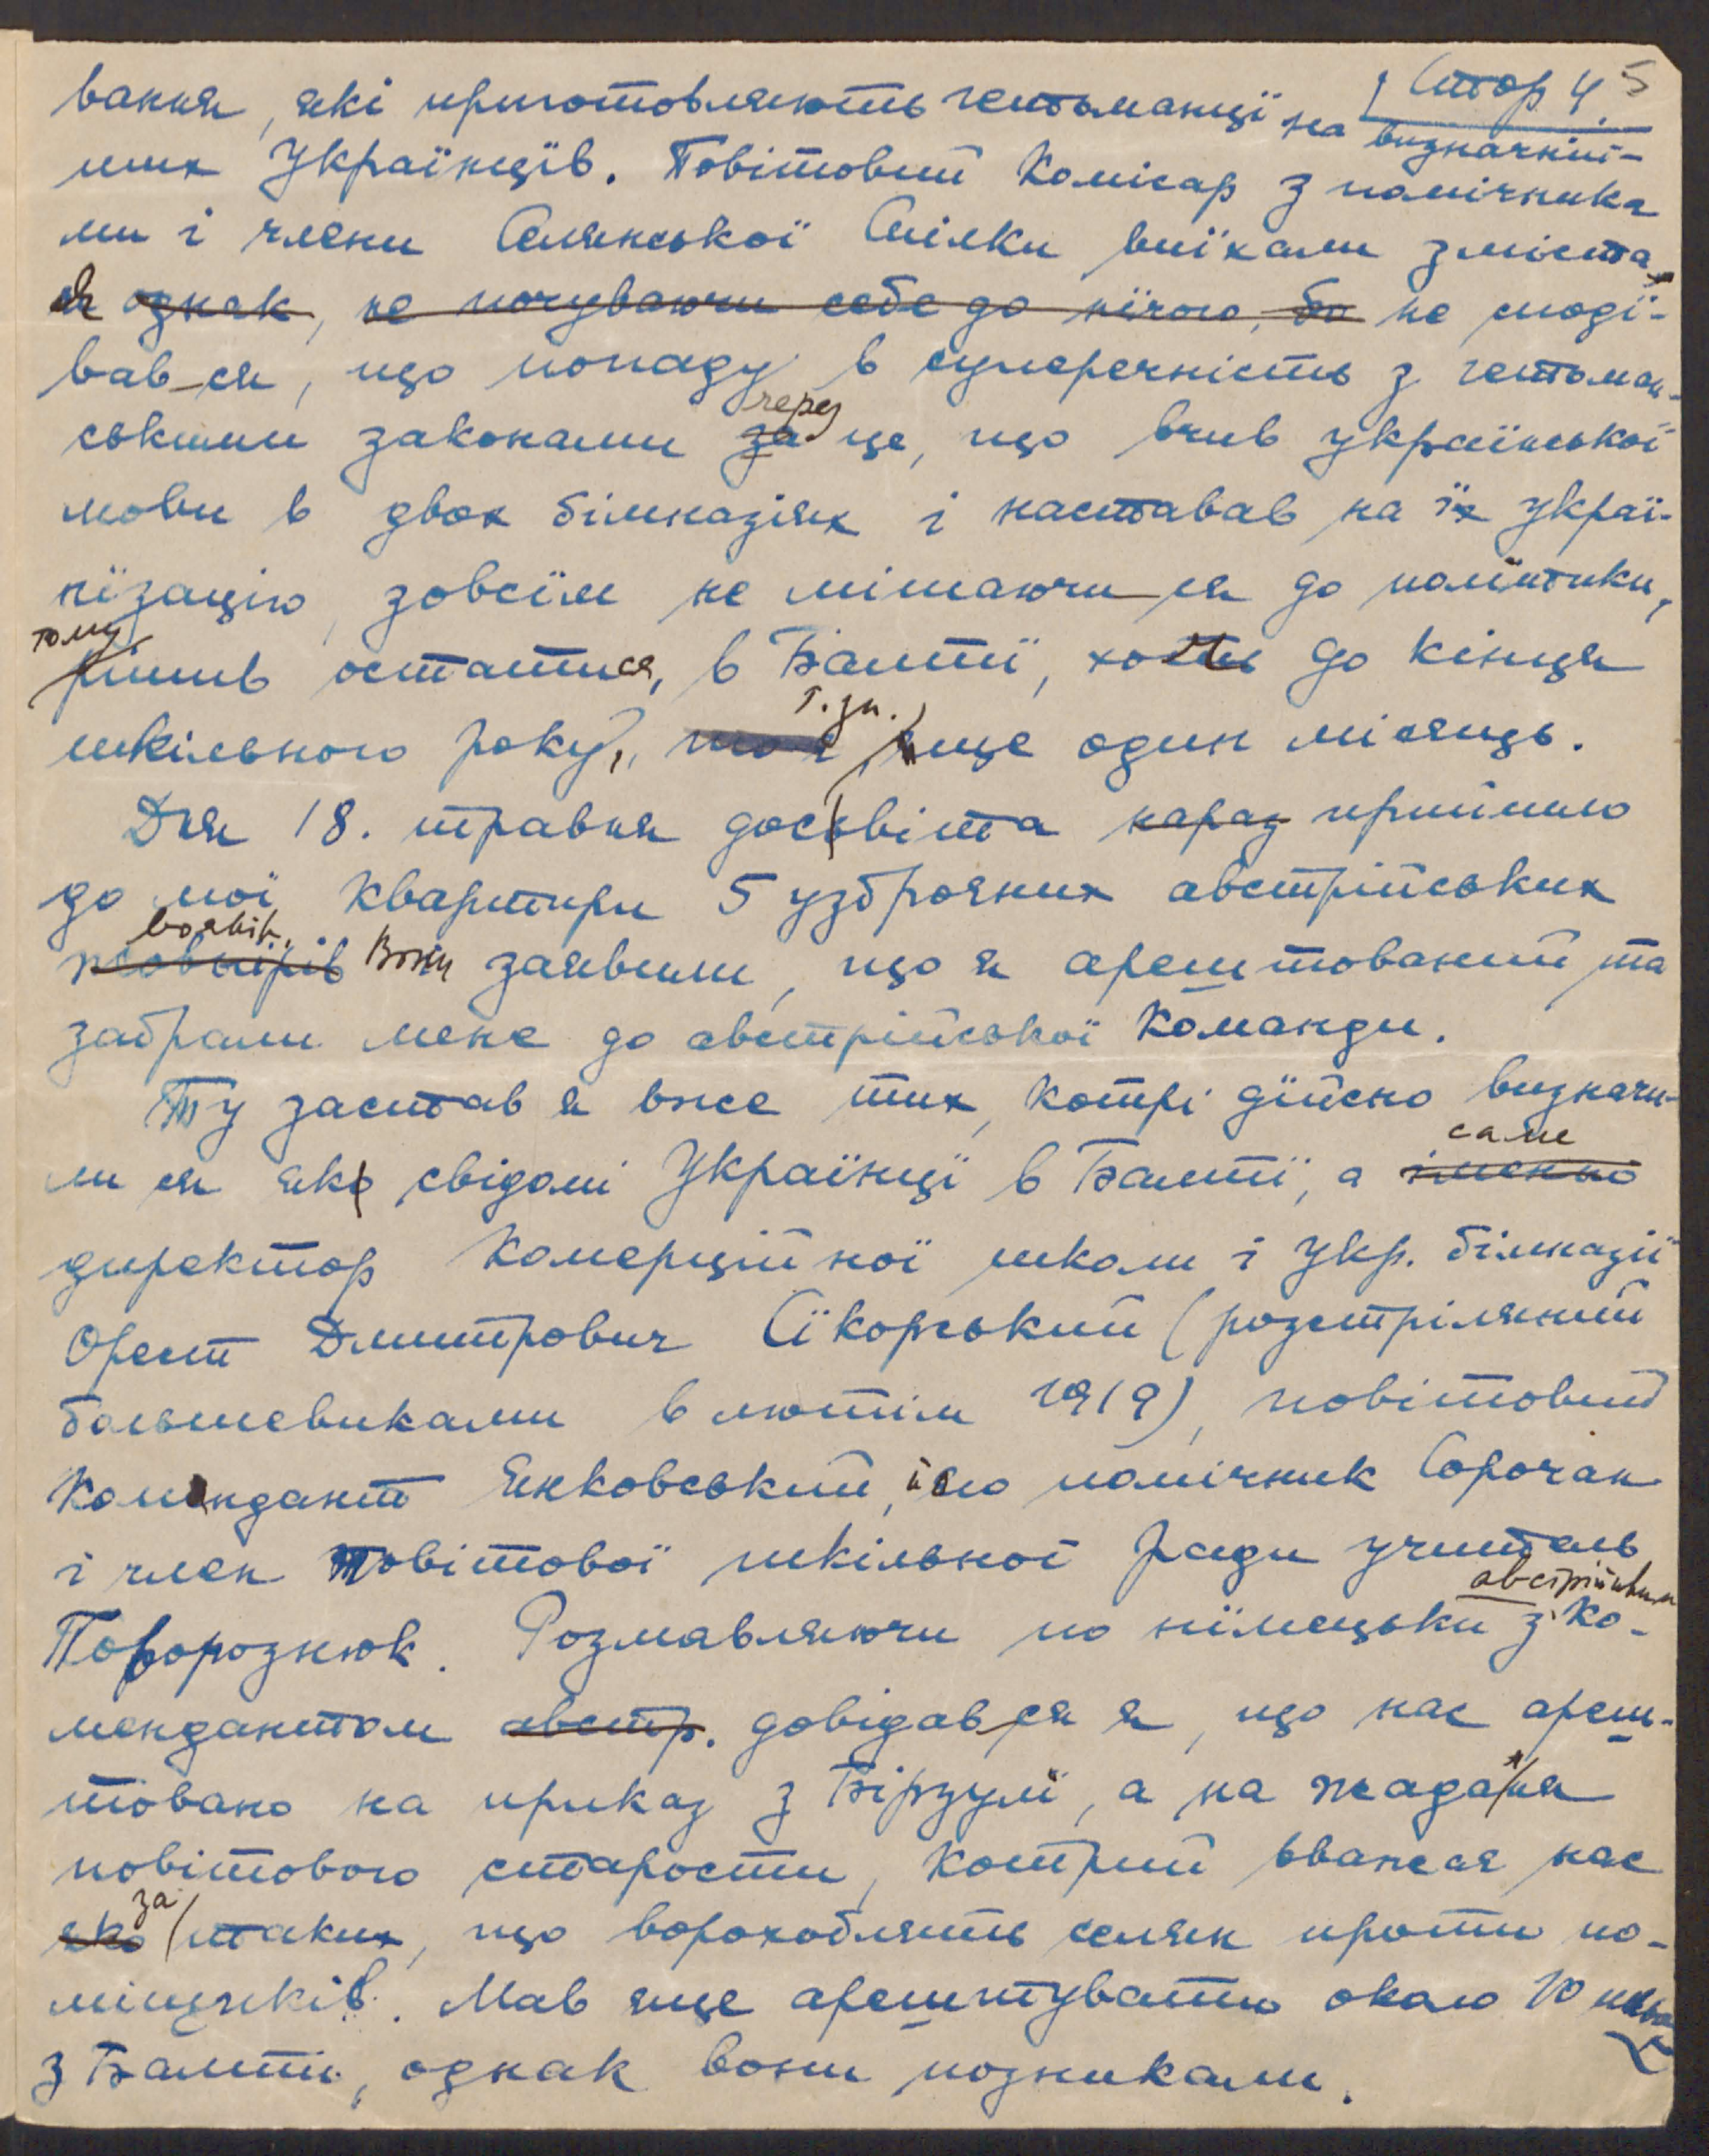 Стор 4. 5
вання, які приготовляють гетьманці на визначній-
ших Українців. Повітовий Комісар з помічника
ми і члени Селянської Спілки виїхали з міста,
я однак, не почуваючи себе до нічого, бо не споді-
вав-ся, що попаду в суперечність з гетьман-
ськими законами за через це, що вчив української
мови в двох ґімназіях і наставав на їх украї-
нїзацію, зовсїм не мішаючи-ся до полїтики,
тому рішив остатися, в Балтї, хоть до кінця
шкільного року, т. зн. ще один місяць.
Дня 18. травня досвіта нараз прийшло
до мої квартири 5 узброяних австрійських
жовнірів вояків. Вони заявили, що я арештований та
забрали мене до австрійської Команди.
Ту застав я вже тих, котрі дїйсно визначи-
ли ся як свідомі Українцї в Балтї, а іменно саме
директор Комерційної школи і Укр. ґімназії
Орест Дмитрович Сїкорський (розстріляний
большевиками в лютім 1919), повітовий
Комендант Янковський, його помічник Сорочан
і член Повітової шкільної Ради учитель
Подорознюк. Розмавляючи по нїмецьки з австрійським Ко-
мендантом австр. довідався я, що нас ареш-
товано на приказ з Бірзулї, а на жадання
повітового старости, котрий вважав нас
яко за таких, що ворохоблять селян проти по-
міщиків. Мав ще арештувати около 10
з Балти, однак вони позникали.